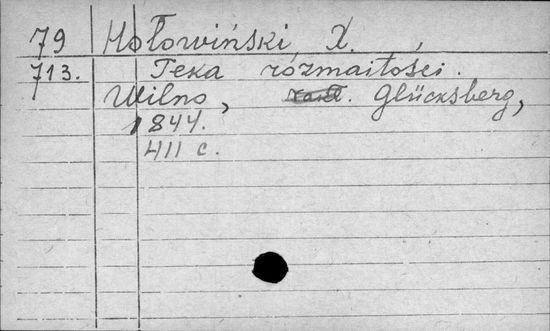 79 Hołowiński, X.
713. Teka rózmaitości.
Wilno, Glücksberg,
1844.
411 c.